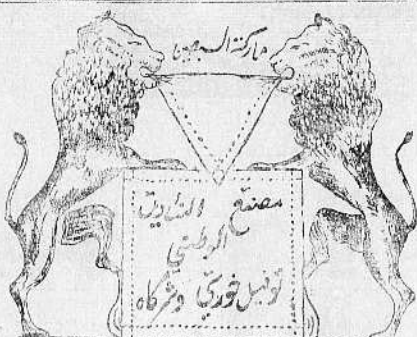 ماركة السبعين
مصنع
الوطني
توفيل خوري وشركاه